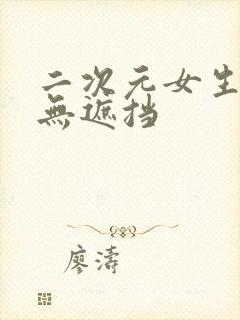 二次元女生
無遮挡
廖濤